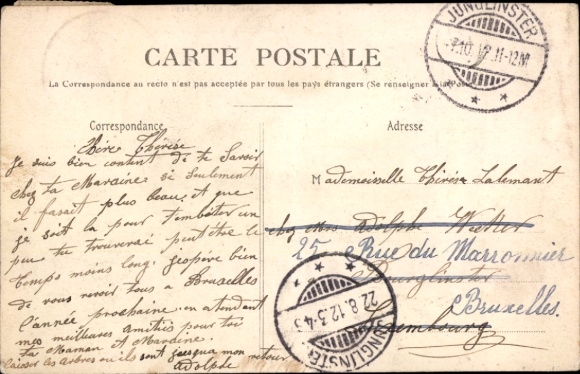 CARTE POSTALE
La Correspondance au recto n'est pas acceptée par tous les pays étrangers (Se renseigner à la Poste)
JUNGLINSTER
11-12M
Correspondance
Adresse
Chère Thérèse
Je suis bien content de te Savoir
chez ta Maraine si seulement
il fasait plus beau, et que
je soit la pour t'embêter un
peu tu trouverai peut être le
temps moins long; j'espère bien
de vous revoir tous a Bruxelles
l'année prochaine en attendant
mes meilleures amitiés pour toi
ta Maman & Maraine.
laisser les arbres ou ils sont jusqua mon retour
Adolphe
Mademoiselle Thérèse Lalemant
chez Mme Adolphe
25 Rue du Marronnier
Bourglinster
Bruxelles.
Luxembourg
22.8.12.3-4S
JUNGLINSTER